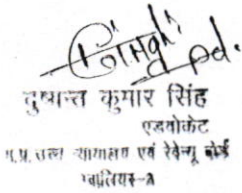 Singh Ad.
दुष्यन्त कुमार सिंह
एडवोकेट
म.प्र. उच्च न्यायालय एवं रेवेन्यू बोर्ड
ग्वालियर-A